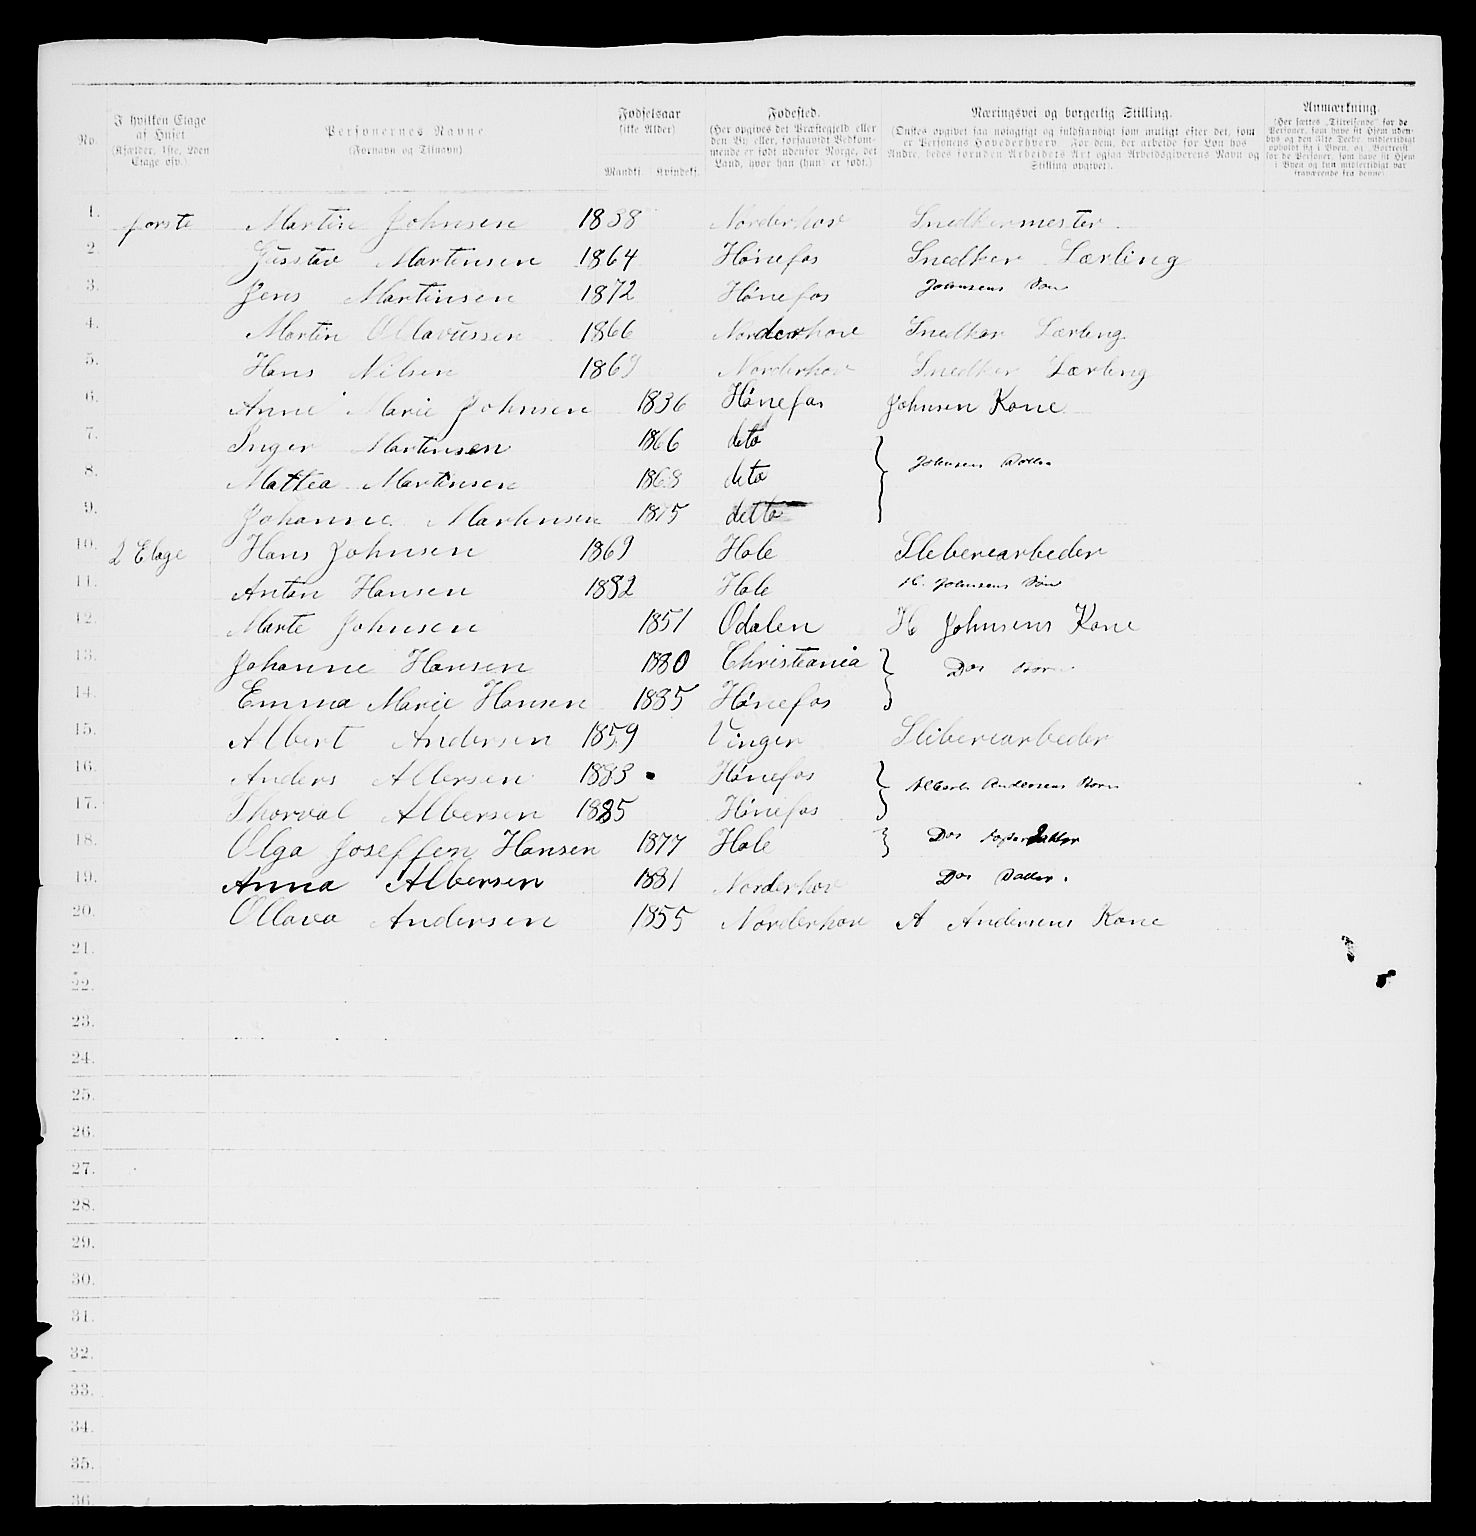 No.
I hvilken Etage af Huset (Kjælder, 1ste, 2den Etage osv.).
Personernes Navne (Fornavn og Tilnavn).
Fødselsaar (ikke Alder) Mandkj. Kvindekj.
Fødested. (Her opgives det Præstegjeld eller den By eller, forsaavidt Vedkommende er født udenfor Norge, det Land, hvor han (hun) er født.)
Næringsvei og borgerlig Stilling. (Ønskes opgivet saa nøiagtigt og fuldstændigt som muligt efter det, som er Personens Hovederhverv. For dem, der arbeide for Løn hos Andre, bedes foruden Arbeidets Art ogsaa Arbeidsgiverens Navn og Stilling opgivet).
Anmærkning. (Her sættes „Tilreisende“ for de Personer, som have sit Hjem udenbys og den 31te Decbr. midlertidigt opholdt sig i Byen, og „Bortreist“ for de Personer, som have sit Hjem i Byen og kun midlertidigt var fraværende fra denne)
1. første Martin Johnsen 1838 Norderhov Snedkermester
2. Gusstav Martinsen 1864 Hønefos Snedker Lærling
3. Jens Martinsen 1872 Hønefos Johnsens Søn
4. Martin Ollavussen 1866 Norderhove Snedker Lærling
5. Hans Nilsen 1869 Norderhov Snedker Lærling
6. Anne Marie Johnsen 1836 Hønefos Johnsen Kone
7. Inger Martinsen 1866 deto
8. Mattea Martinsen 1868 deto } Johnsens
9. Johanne Martinsen 1875 detto
10. 2 Etage Hans Johnsen 1869 Hole Sliberearbeder
11. Anton Hansen 1882 Hole H. Johnsens Søn
12. Marte Johnsen 1851 Odalen H Johnsens Kone
13. Johanne Hansen 1880 Christiania } Dos Børn
14. Emma Marie Hansen 1885 Hønefos
15. Albert Andersen 1859 Vinger Sliberearbeder
16. Anders Albersen 1883 Hønefos } Alberts Andersens Børn
17. Thorval Albersen 1885 Hønefos
18. Olga Joseffen Hansen 1877 Hole } Dos
19. Anna Albersen 1881 Norderhov Dos Datter.
20. Ollava Andersen 1855 Norderhov A Andersens Kone
21.
22.
23.
24.
25.
26.
27.
28.
29.
30.
31.
32.
33.
34.
35.
36.